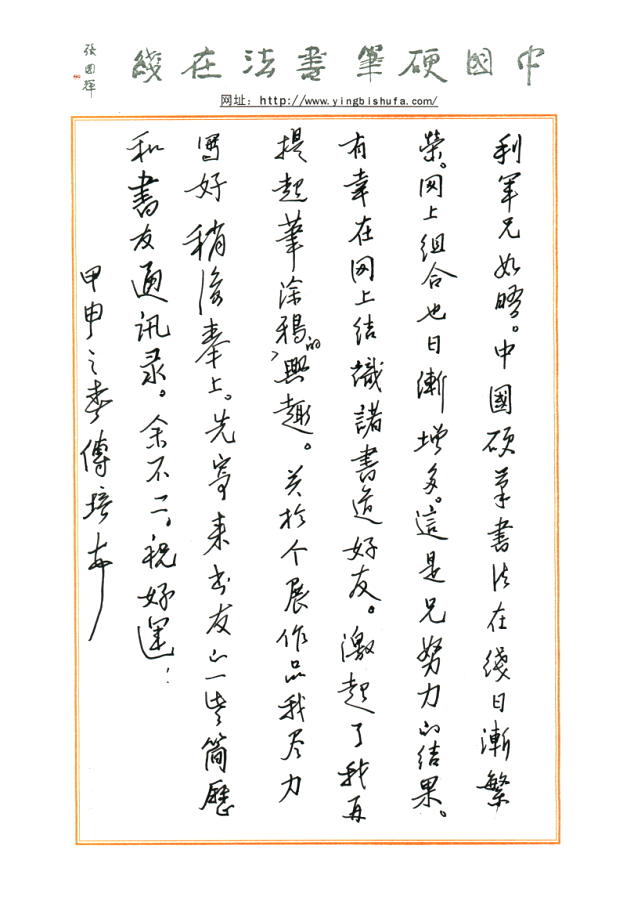 中國硬筆書法在綫
張國輝
网址：http://www.yingbishufa.com/
利軍兄如晤。中國硬筆書法在綫日漸繁
榮。网上组合也日漸增多。這是兄努力的结果。
有幸在网上结識諸書道好友。激起了我再
提起筆涂鴉的興趣。关於个展作品我尽力
写好稍後奉上。先寄来书友的一些简歷
和書友通訊录。余不二。祝好運！
甲申之春傅培